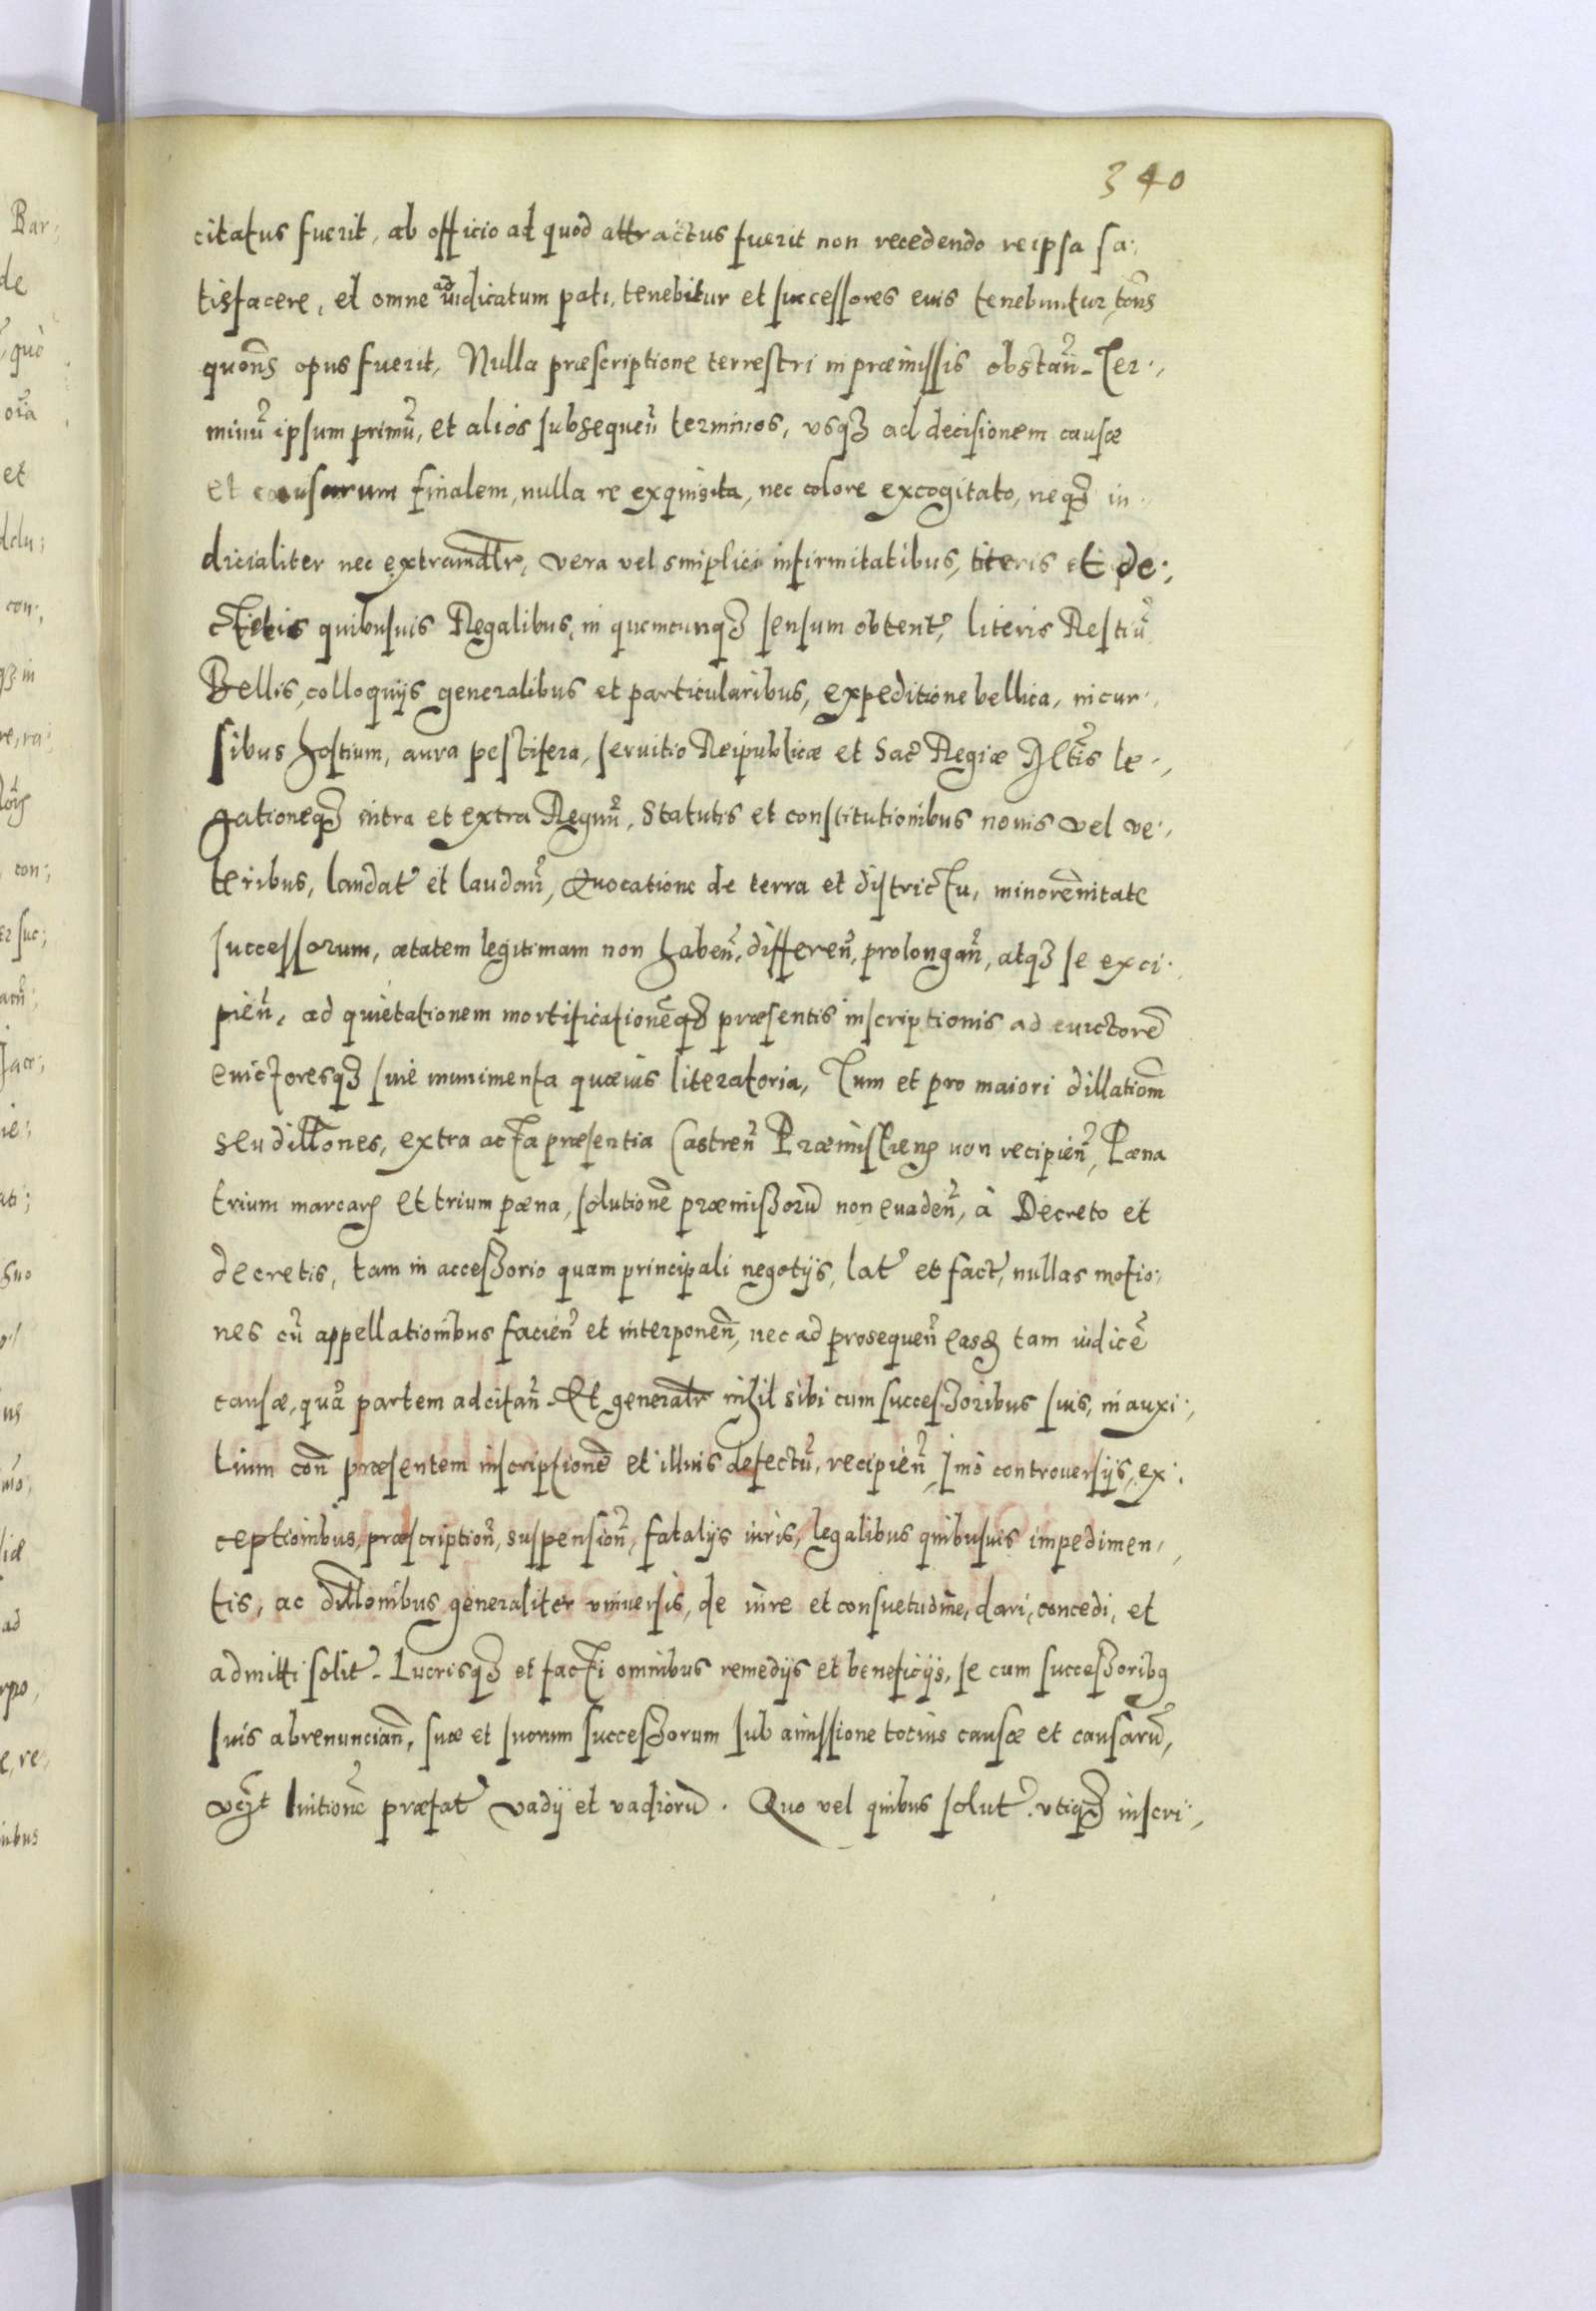 340
citatus fuerit, ab officio ad quod attractus fuerit non recedendo reipsa sa:
tisfacere, et omne adiudicatum pati, tenebitur et successores euis tenebuntur, tons̄
quons̄ opus fuerit, Nulla præscriptione terrestri in præmissis obstan̄. Ter:,
minū ipsum primū, et alios subsequen̄ terminos, vsqȝ ad decisionem causæ
et causarum finalem, nulla re exquisita, nec colore excogitato, neqȝ iu:
dicialiter nec extraiudlr̄, vera vel simplici infirmitatibus, literis et de:,
cretis quibusuis Regalibus, in quemcunqȝ sensum obtent̄, literis Restiū
Bellis, colloquijs generalibus et particularibus, expeditione bellica, incur:,
sibus hostium, aura pestifera, seruitio Reipublicæ et Sac̄ Regiæ Mtis̄ le:,
gationeqȝ intra et extra Regnū, Statutis et constitutionibus nouis vel ve:,
teribus, laudat̄ et laudan̄, Euocatione de terra et districtu, minoren̄itate
successorum, ætatem legitimam non haben̄, differen̄, prolongan̄, atqȝ se exci:,
pien̄, ad quietationem mortificationēqȝ præsentis inscriptionis ad euictorē
euictoresqȝ siue munimenta quæuis literatoria, Tum et pro maiori dillatiom̄
seu dill̄ones, extra acta præsentia Castren̄ Præmislien̄ non recipien̄, Pæna
trium marcarꝝ et trium pæna, solutionē præmissorū non euaden̄, à Decreto et
decretis, tam in accessorio quam principali negotijs, lat̄ et fact̄, nullas motio:
nes cū appellationibus facien̄ et interponen̄, nec ad prosequen̄ easqȝ tam iudicē
causæ, quā partem adcitan̄. Et generalr̄ nihil sibi cum successoribus suis, in auxi:,
lium con̄ præsentem inscriptionē et illius defectū, recipien̄, Imò controuersijs, ex:
ceptionibus, præscription̄, suspension̄, fatalijs iuris, legalibus quibusuis impedimen:,
tis, ac dill̄onibus generaliter vniuersis, de iure et consuetudine, dari, concedi, et
admitti solit̄. Lucrisqȝ et facti omnibus remedijs et beneficijs, se cum successoribꝰ
suis abrenuncian̄, suæ et suorum successorum sub amissione totius causæ et causarū,
luitionē præfat̄ vadij et vadiorū. Quo vel quibus solut̄. vtiqȝ inscri:,